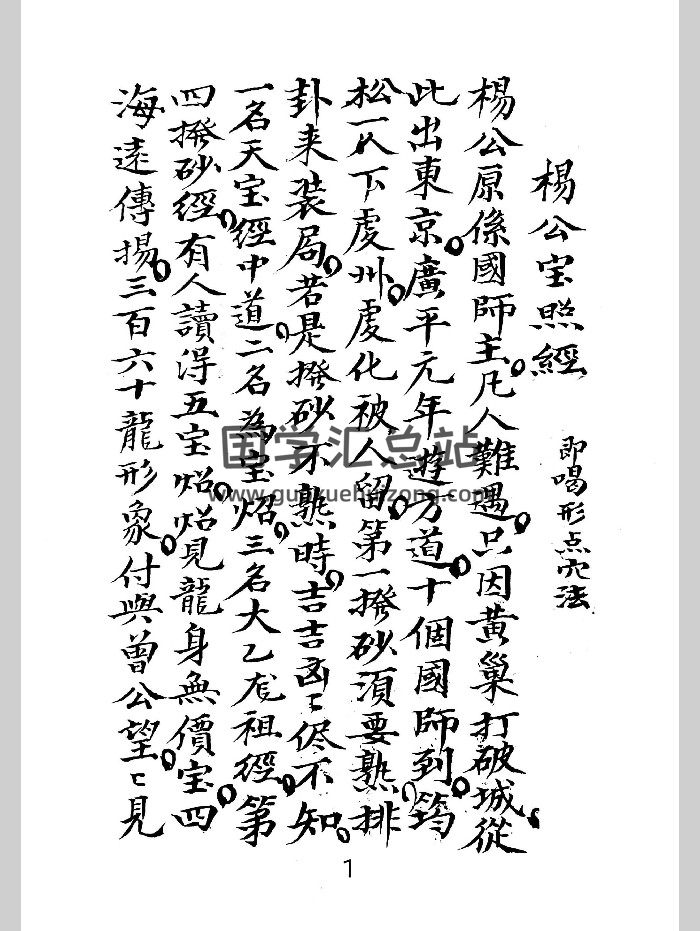 楊公宝照經
即喝形点穴法
楊公原係國師主。凡人難遇。只因黃巢打破城。從
此出東京。廣平元年遊方道。十個國師列。筠
松一人下虔州。虔化被人留。第一撥砂須要熟。排
卦来裝局。若是撥砂不熟時。吉吉凶〻侭不知。
一名天宝經中道。二名為宝炤。三名大乙尨祖經。第
四撥砂經。有人讀得五宝炤。炤見龍身無價宝。四
海遠傳揚。三百六十龍形象。付與曾公望。〻見
国学汇总站
www.guoxuehuizong.com
1